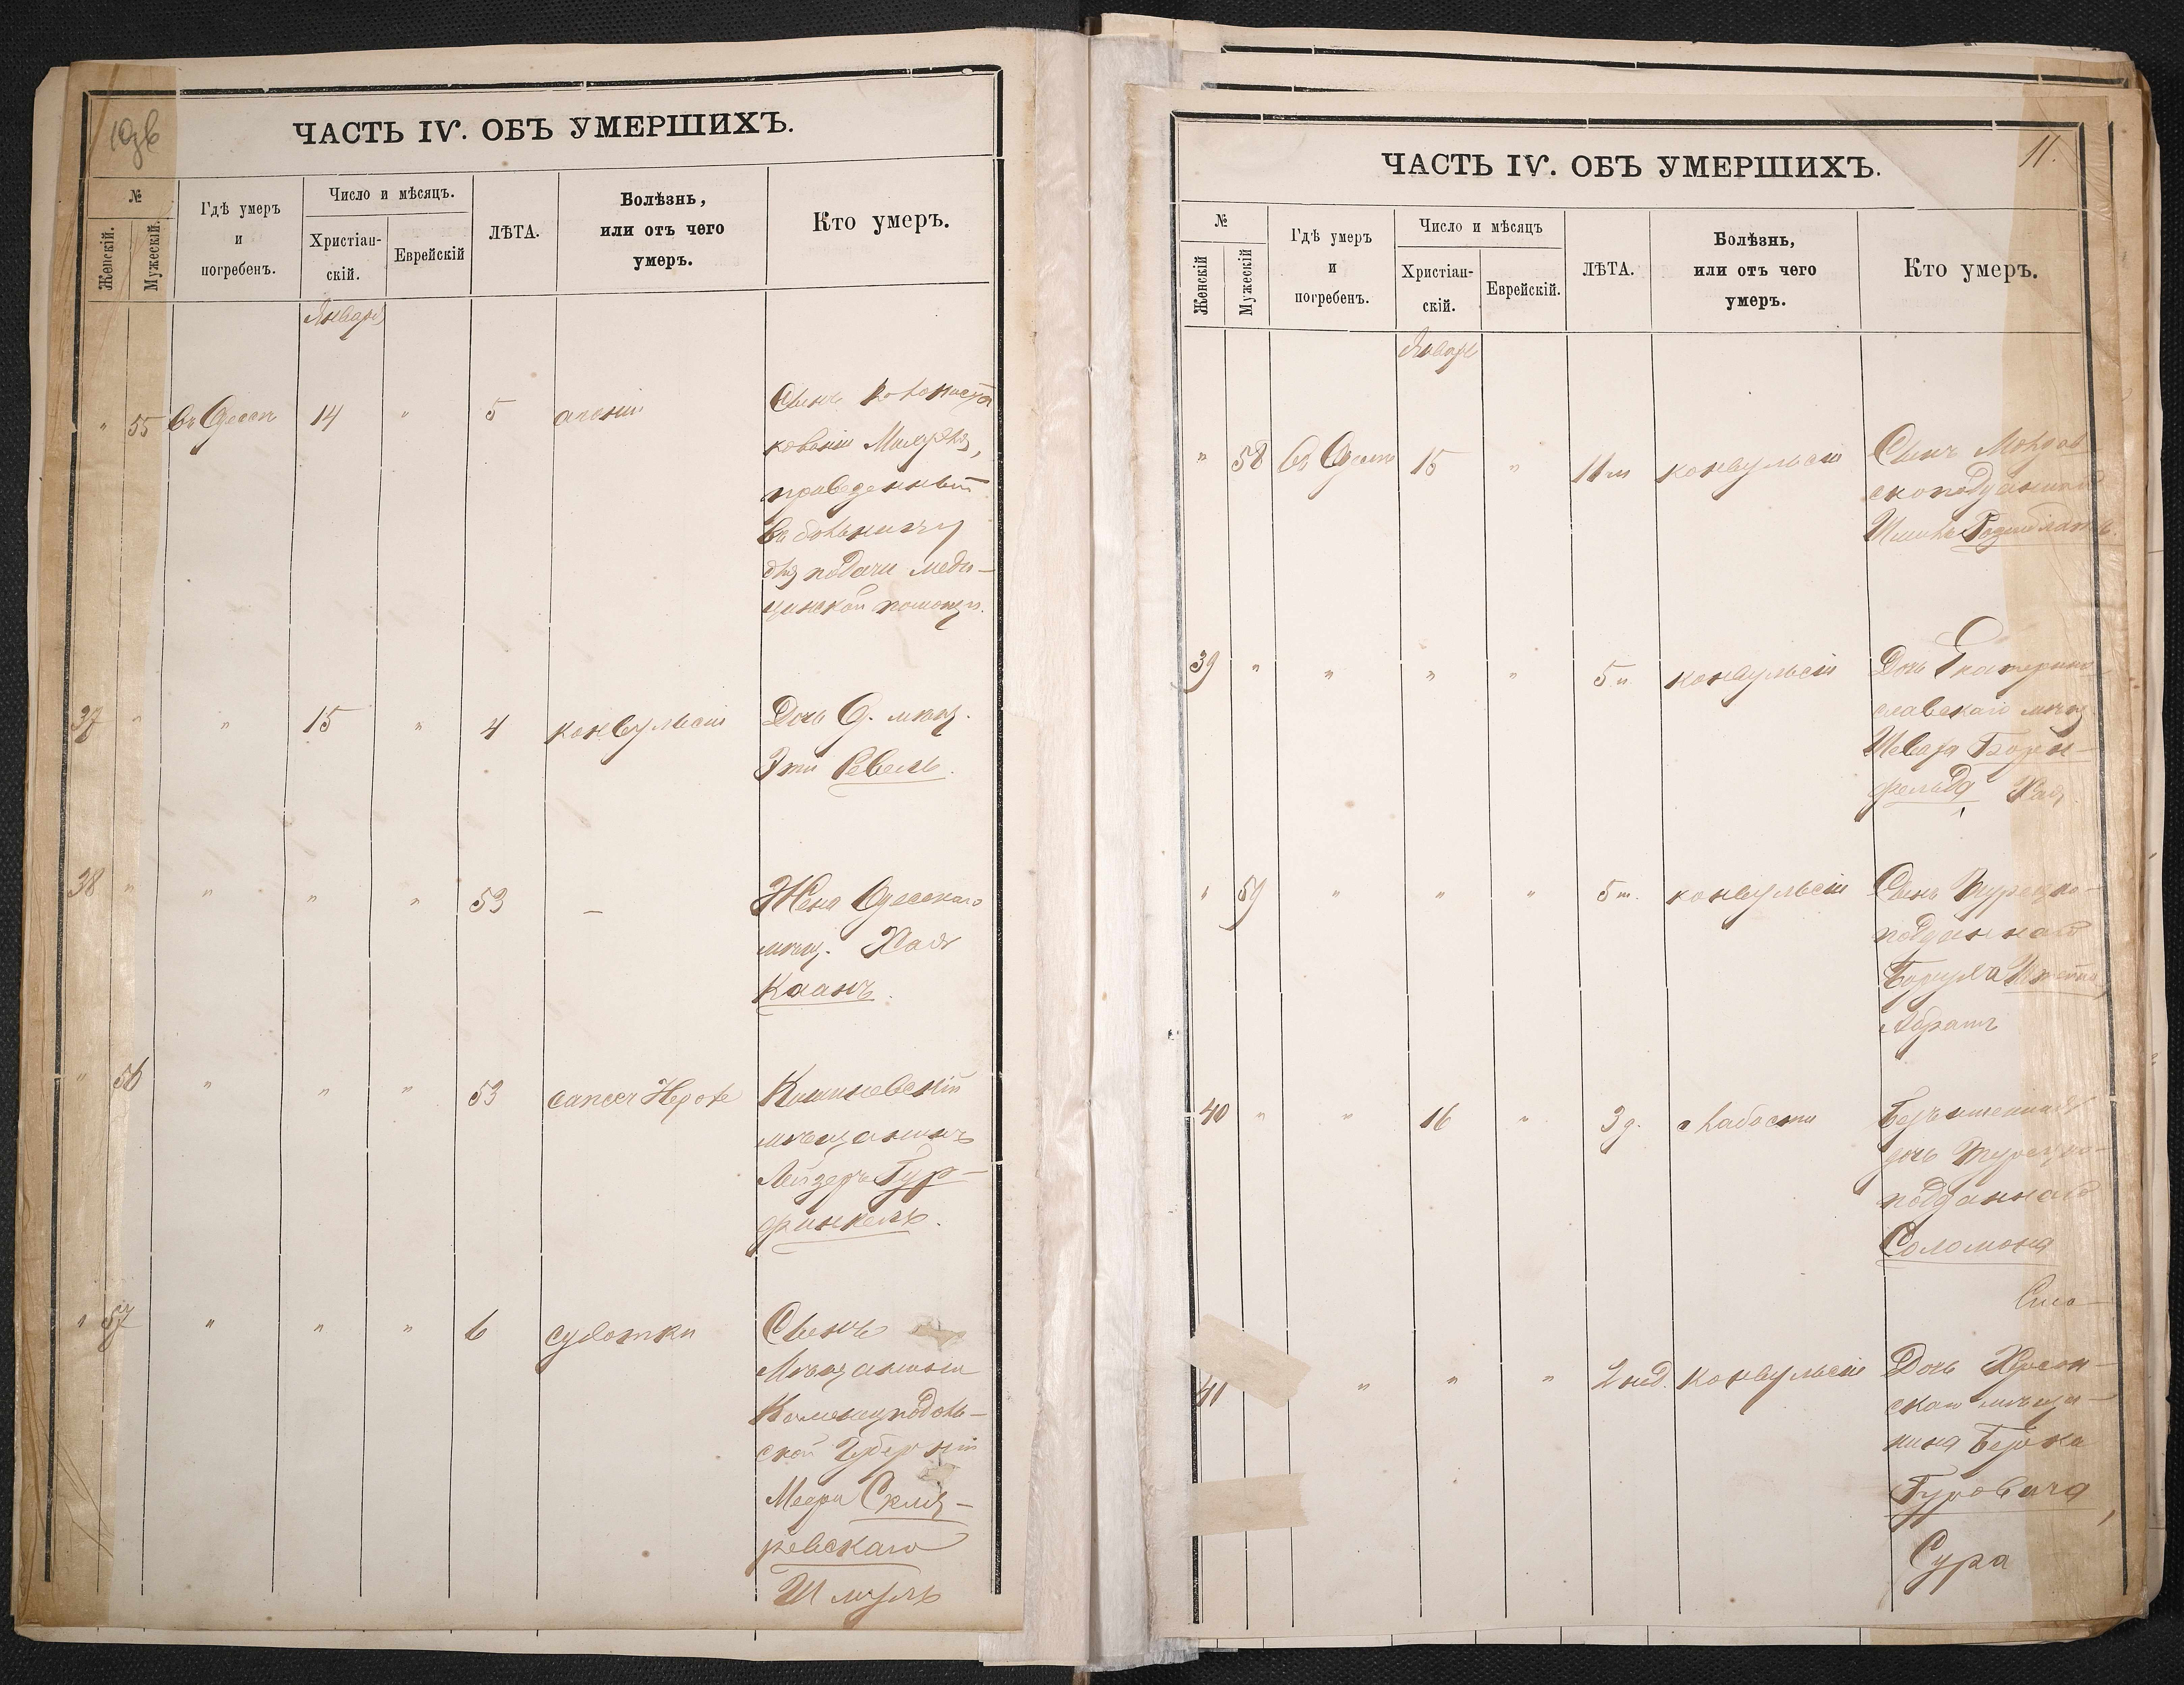 10об
ЧАСТЬ IV. ОБЪ УМЕРШИХЪ.
№
Женскій.
Мужескій.
Гдѣ умеръ
и
погребенъ.
Число и мѣсяцъ.
Христіан-
скій.
Еврейскій
ЛѢТА.
Болѣзнь,
или отъ чего
умеръ.
Кто умеръ.
Января
" 55 въ Одессѣ 14 " 5 агоніи Сынъ колониста
приведенный
въ больницу
для подачи меди-
цинской помощи.
37 " " 15 " 4 конвульсіи Дочь О. мѣщ.
Эти Ревель.
38 " " " " 53 — Жена Одесскаго
мѣщ. Хая
Каанъ.
" 56 " " " 53 cancer Кишиневскій
мѣщанинъ
Лейзеръ Гур-
финкель.
" 57 " " " 6 сухотки Сынъ
Мѣщанина
Каменецподоль-
ской Губерніи
Скля-
ревскаго
Шмуль
11.
ЧАСТЬ IV. ОБЪ УМЕРШИХЪ.
№
Женскій
Мужескій
Гдѣ умеръ
и
погребенъ.
Число и мѣсяцъ
Христіан-
скій.
Еврейскій.
ЛѢТА.
Болѣзнь,
или отъ чего
умеръ.
Кто умеръ.
Январь
" 58 Въ Одессѣ 15 " 11 м конвульсіи Сынъ Молдав
скоподданнаго
39 " " " " 5 м конвульсіи Дочь Екатерино
славскаго мѣщ
Борн-
фельда Хая
" 59 " " " 5 м. конвульсіи Сынъ Турецко-
подданнаго
Абрамъ
40 " " 16 " 3 д. слабости Безъименная
дочь Турецко-
подданнаго
Соломона
41 " " " 2 нед. конвульсіи Дочь Херсон-
скаго мѣща-
нина Берка
Гуровича,
Сура